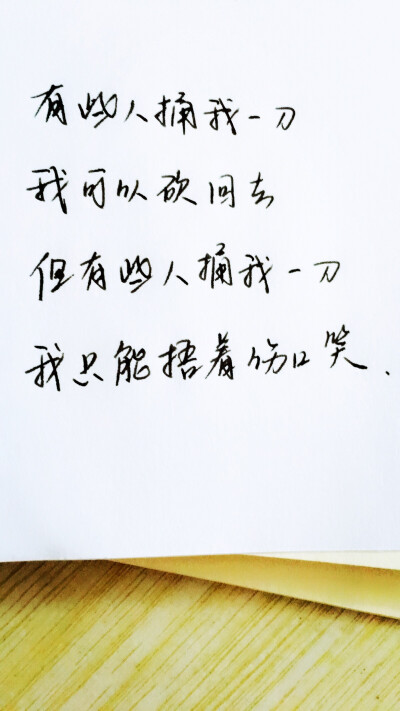 有些人捅我一刀
我可以砍回去
但有些人捅我一刀
我只能捂着伤口笑.